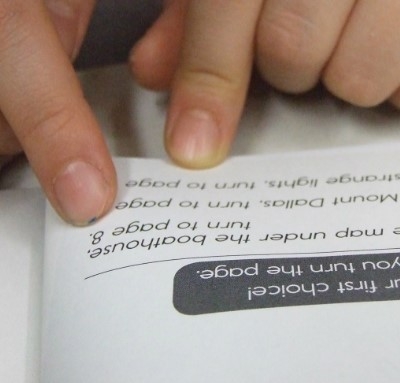 ur first choice!
you turn the page.
e map under the boathouse,
turn to page 8.
Mount Dallas, turn to page
strange lights, turn to page